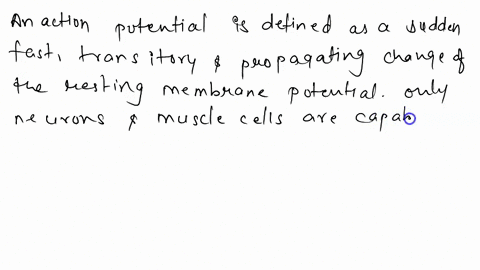 An action potential is defined as a sudden
fast, transitory & propagating change of
the resting membrane potential. only
neurons & muscle cells are capab